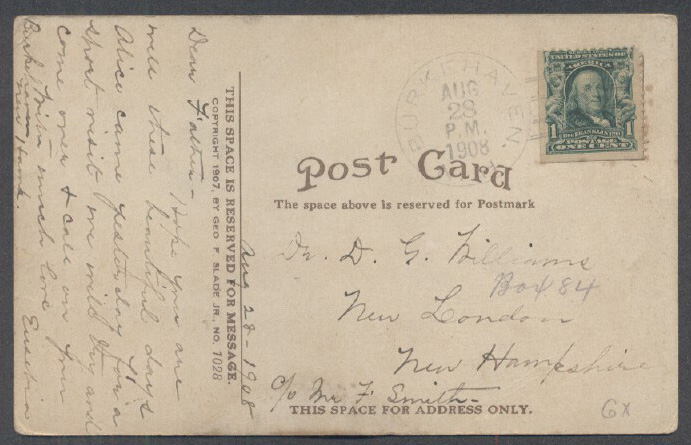 Aug 28 - 1908
Dear Father -
Hope you are
well these beautiful days
Alice came yesterday for a
short visit we will try and
come over & call on you
With much love
THIS SPACE IS RESERVED FOR MESSAGE.
COPYRIGHT 1907, BY GEO F SLADE JR., NO. 1028
BURKEHAVEN
AUG
28
P.M.
1908
UNITED STATES OF
AMERICA
1 1
POSTAGE
ONE CENT
Post Card
The space above is reserved for Postmark
Dr. D. G. Williams
Box 84
New London
New Hampshire
c/o Mr F Smith -
THIS SPACE FOR ADDRESS ONLY.
GX